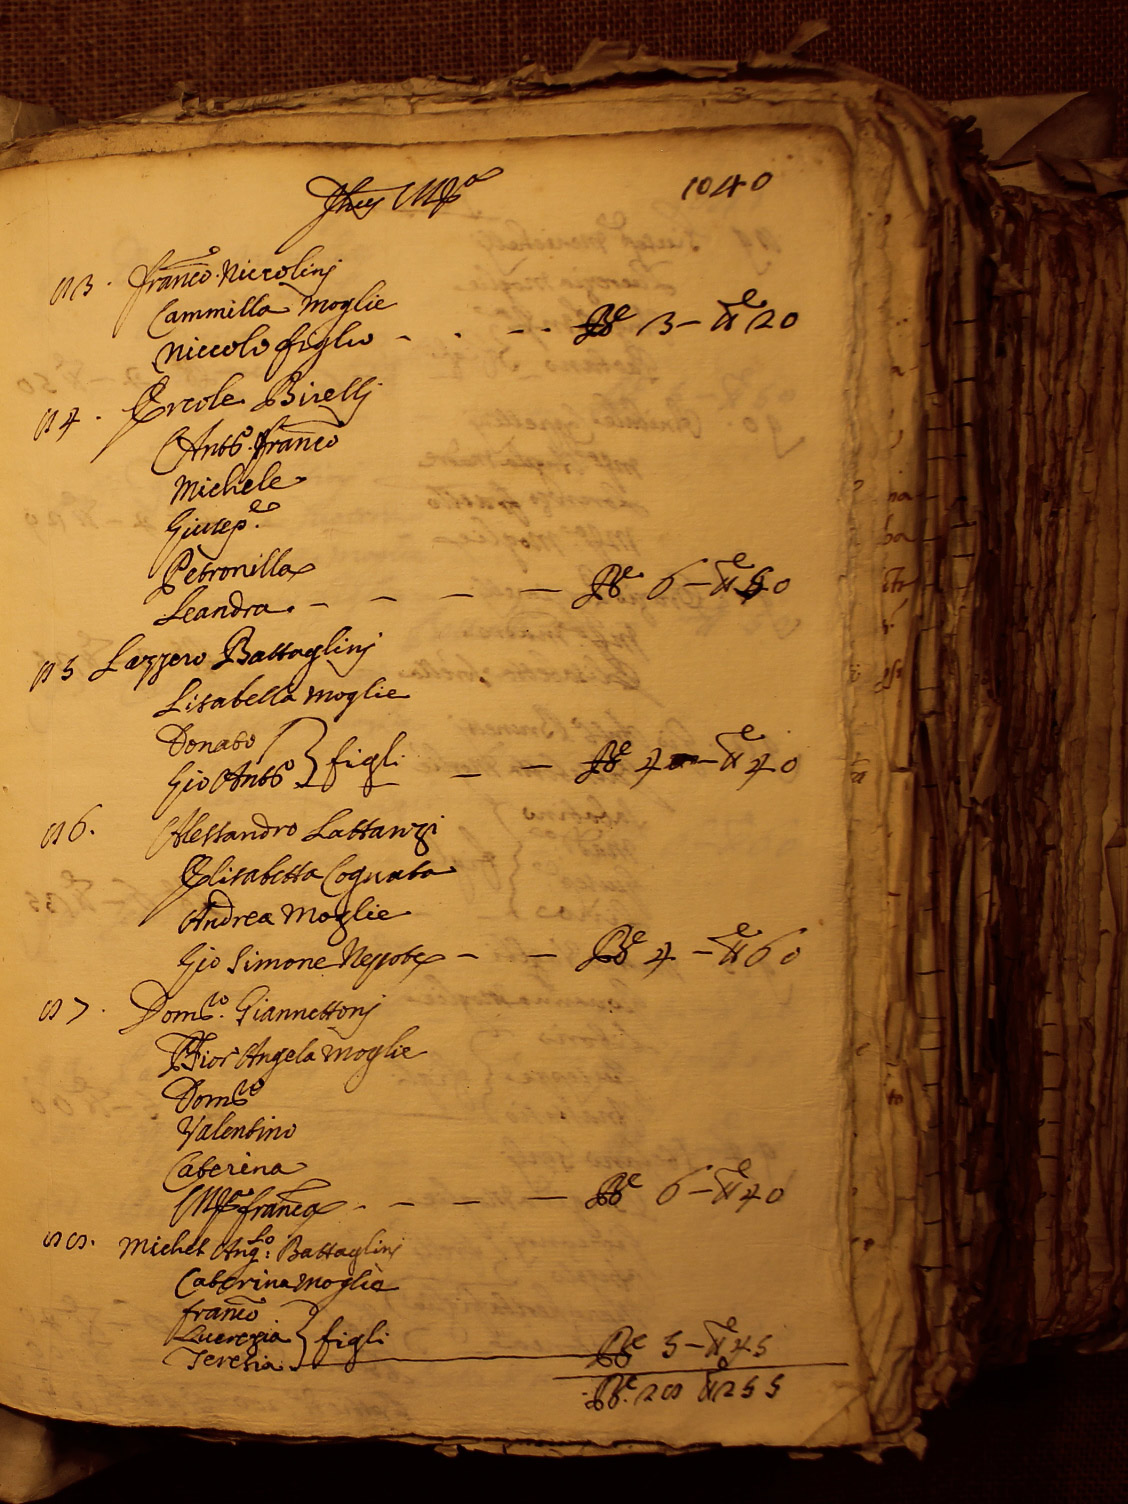 Jhus MRa 1040
83. Franco. Niccolinj
Cammilla Moglie
Niccolò figlio - . - - Be 3 - # e 20
84. Ercole Birellj
Anto. Franco
Michele
Giusepe
Petronilla
Leandra. - - - - Be 6 - # e 50
85 Lazzero Battaglinj
Lisabetta Moglie
Donato
Gio Anto } figli - - Be 4 - # e 40
86. Alessandro Lattanzi
Elisabetta Cognata
Andrea Moglie
Gio Simone Nepote - - Be 4 - # e 60
87. Domco. Giannettonj
Fior Angela Moglie
Domco
Valentino
Caterina
Ma Franca - - - - Be 6 - # e 40
88. Michel Anglo: Battaglinj
Caterina Moglie
Franco
Lucrezia } figli
Teresia Be 5 - # e 45
Be. 28 # e 255